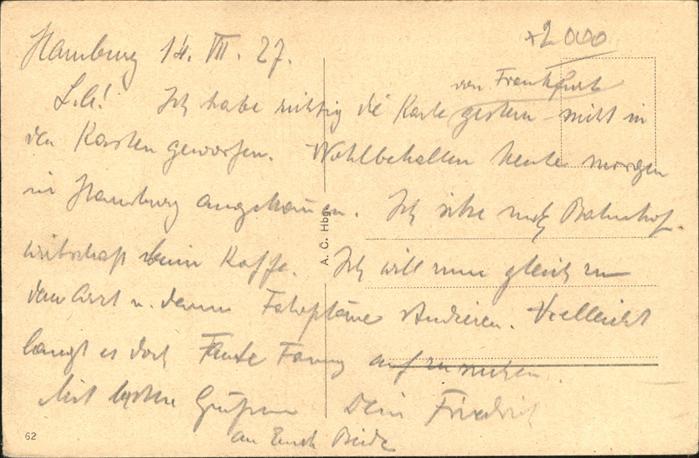 Hamburg 14. VII. 27.
+2000
von Frankfurt
L.G! Ich habe richtig die Karte gestern nicht in
den Kasten geworfen. Wohlbehalten heute morgen
in Hamburg angekommen. Ich sitze Bahnhof-
wirtschaft beim Kaffe. Ich will nun gleich zu
dem Arzt u. dann Fahrpläne studieren. Vielleicht
langt es doch Tante Fanny aufzusuchen.
Mit Grüßen Dein Friedrich
an Euch Beide
A. C. Hbg.
62